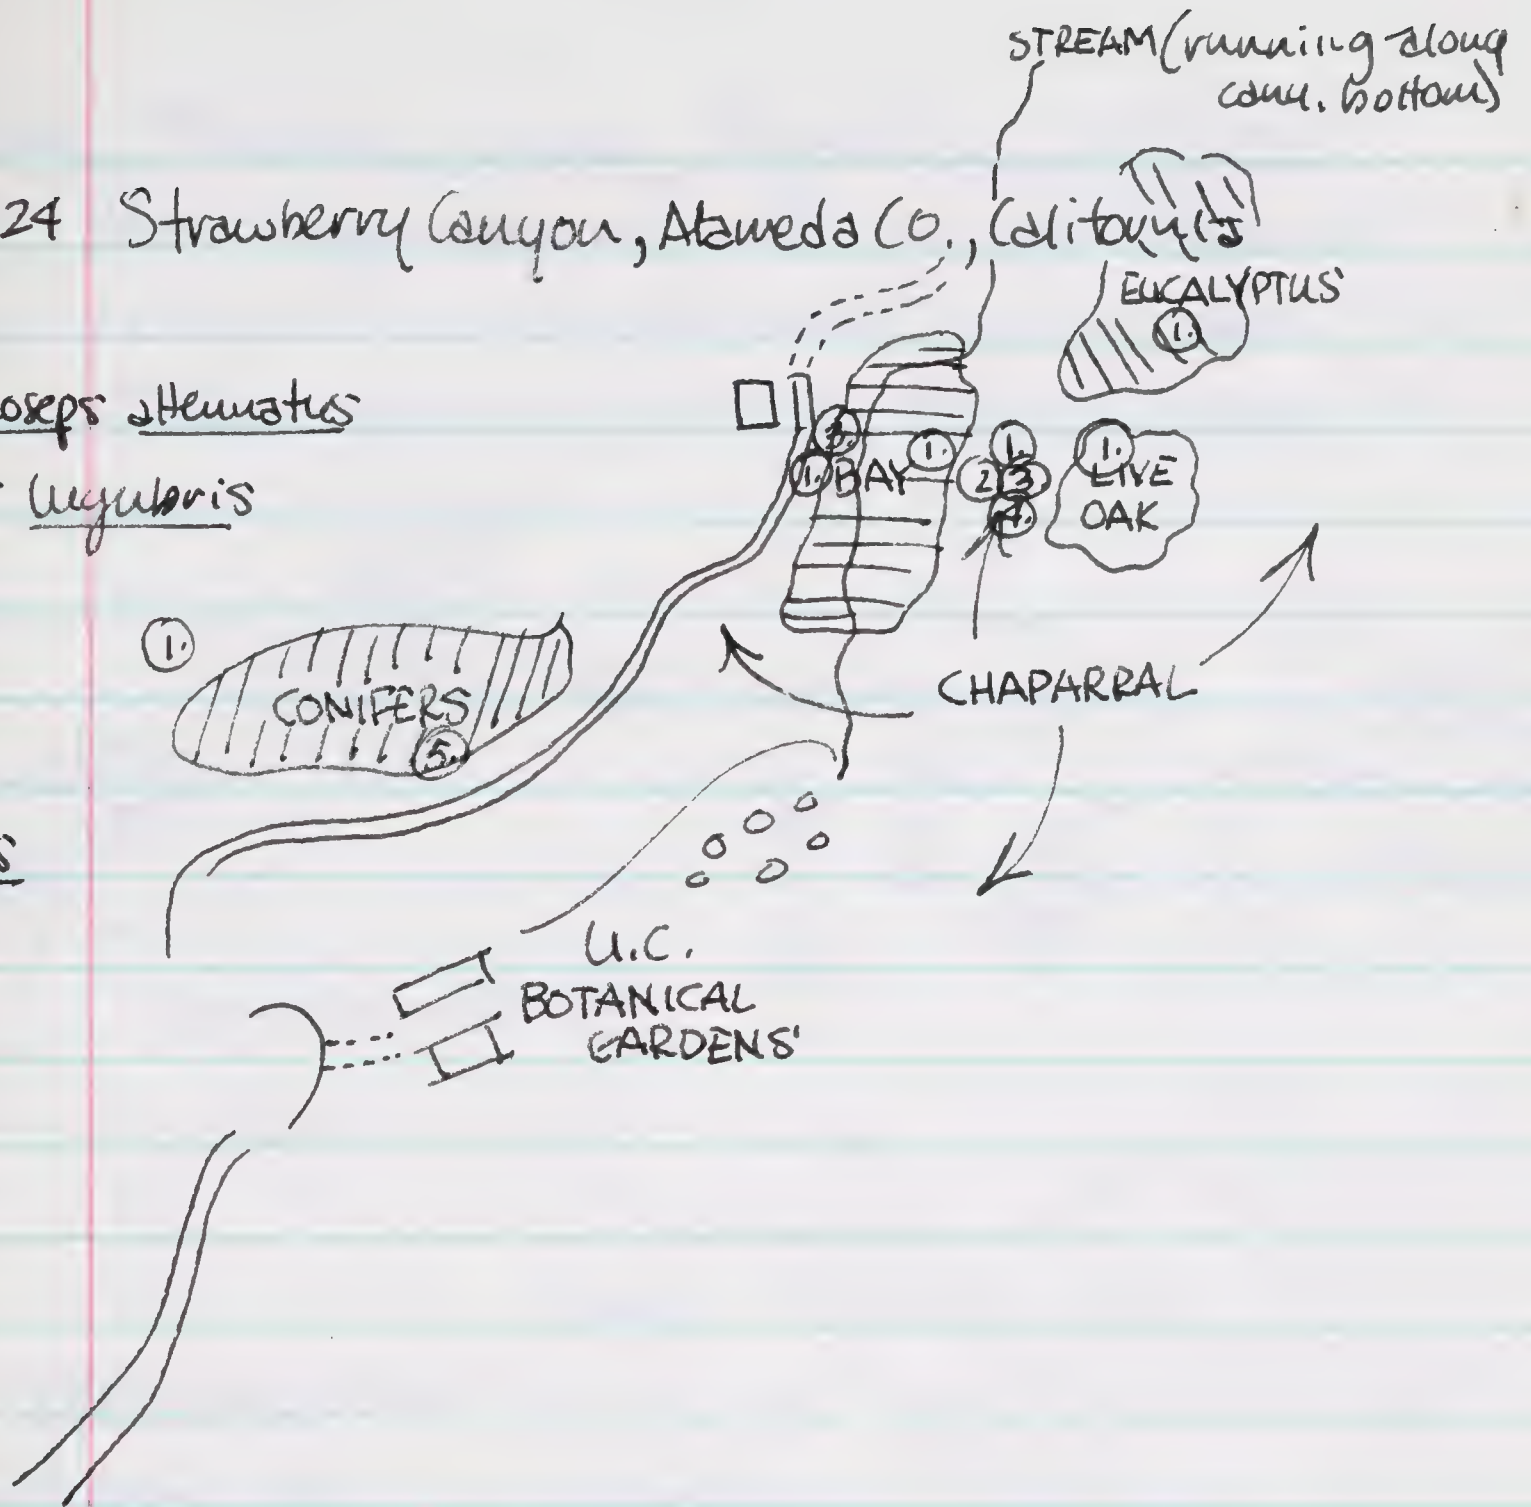 STREAM (running along
cany. bottom)
24 Strawberry Canyon, Alameda Co., California
EUCALYPTUS
1.
oseps attenuatus
lugubris
3.
1. BAY 1.
1.
2 3
4.
1.
LIVE
OAK
1.
CONIFERS
5.
CHAPARRAL
s
U.C.
BOTANICAL
GARDENS